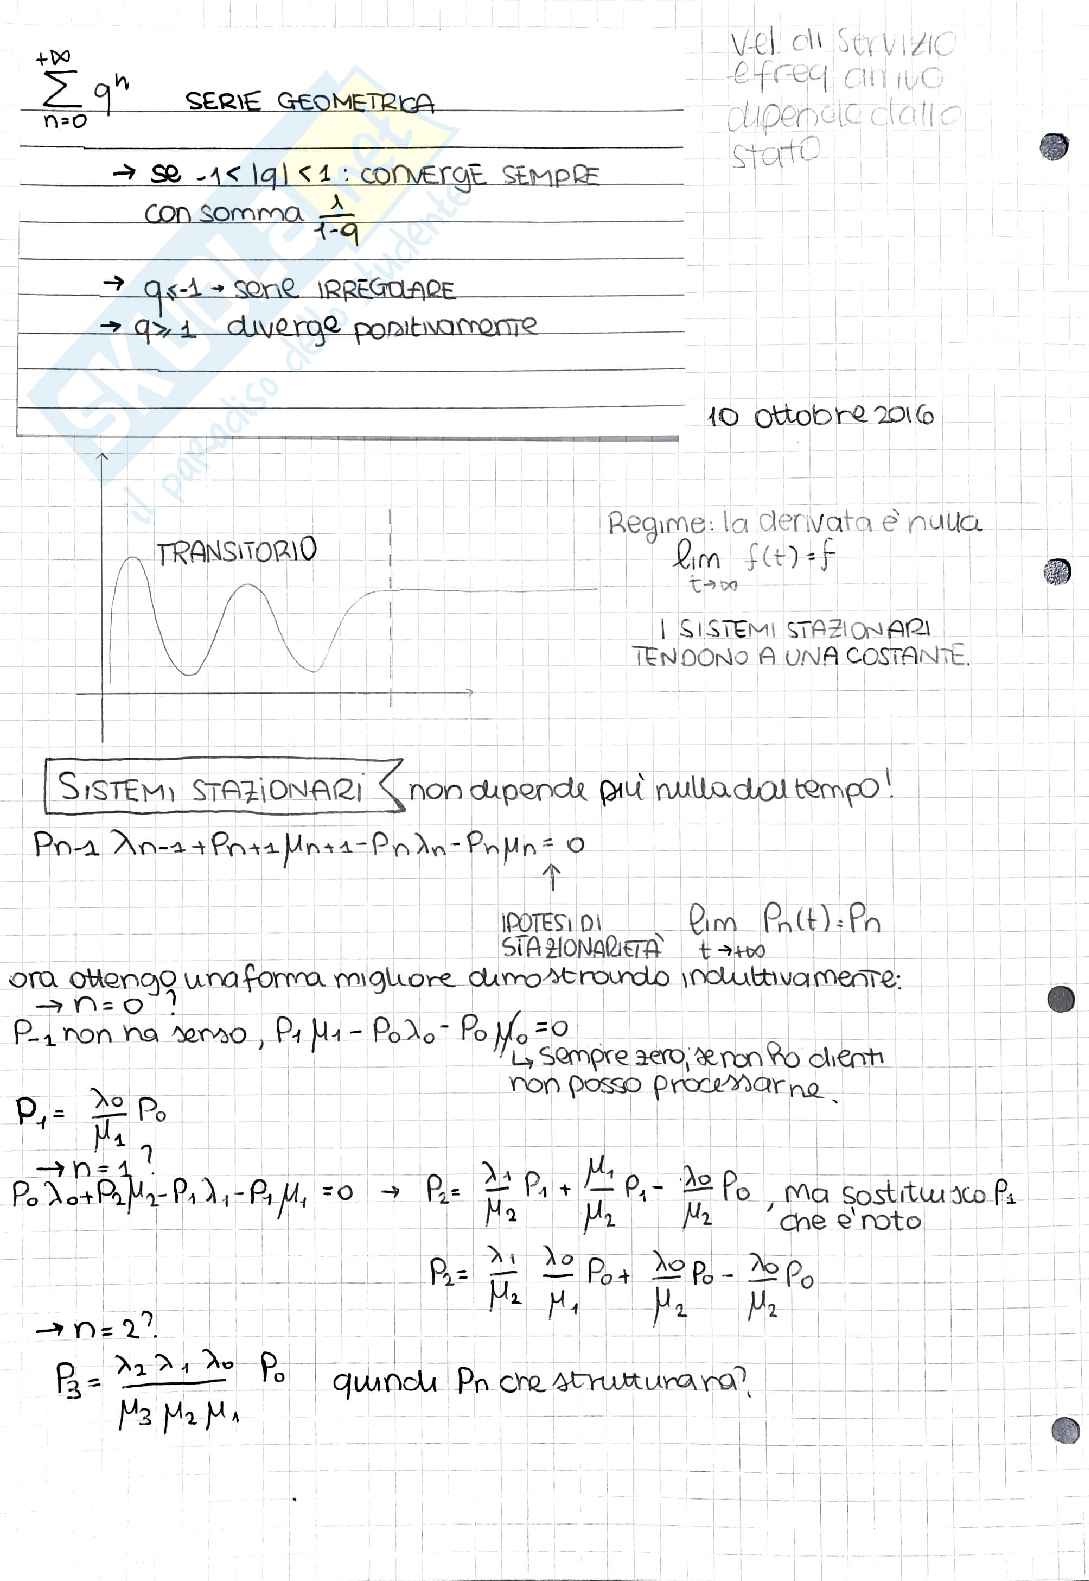 +∞
∑ qⁿ SERIE GEOMETRICA
n=0
→ se -1 < |q| < 1 : CONVERGE SEMPRE
con somma λ/(1-q)
→ q ≤ -1 → serie IRREGOLARE
→ q ≥ 1 diverge positivamente
vel. di servizio
e freq arrivo
dipende dallo
stato
SKUOLA.net
il paradiso dello studente
10 ottobre 2016
TRANSITORIO
Regime: la derivata è nulla
lim f(t) = f
t→∞
I SISTEMI STAZIONARI
TENDONO A UNA COSTANTE.
SISTEMI STAZIONARI non dipende più nulla dal tempo!
Pn-1 λn-1 + Pn+1 μn+1 - Pn λn - Pn μn = 0
↑
IPOTESI DI
STAZIONARIETÀ
lim Pn(t) = Pn
t→+∞
ora ottengo una forma migliore dimostrando induttivamente:
→ n = 0 ?
P-1 non ha senso, P1 μ1 - P0 λ0 - P0 μ0 = 0
↳ sempre zero, se non ho clienti
non posso processarne.
P1 = λ0/μ1 P0
→ n = 1 ?
P0 λ0 + P2 μ2 - P1 λ1 - P1 μ1 = 0 → P2 = λ1/μ2 P1 + μ1/μ2 P1 - λ0/μ2 P0, ma sostituisco P1
che è noto
P2 = λ1/μ2 λ0/μ1 P0 + λ0/μ2 P0 - λ0/μ2 P0
→ n = 2 ?
P3 = λ2 λ1 λ0 / μ3 μ2 μ1 P0 quindi Pn che struttura ha?